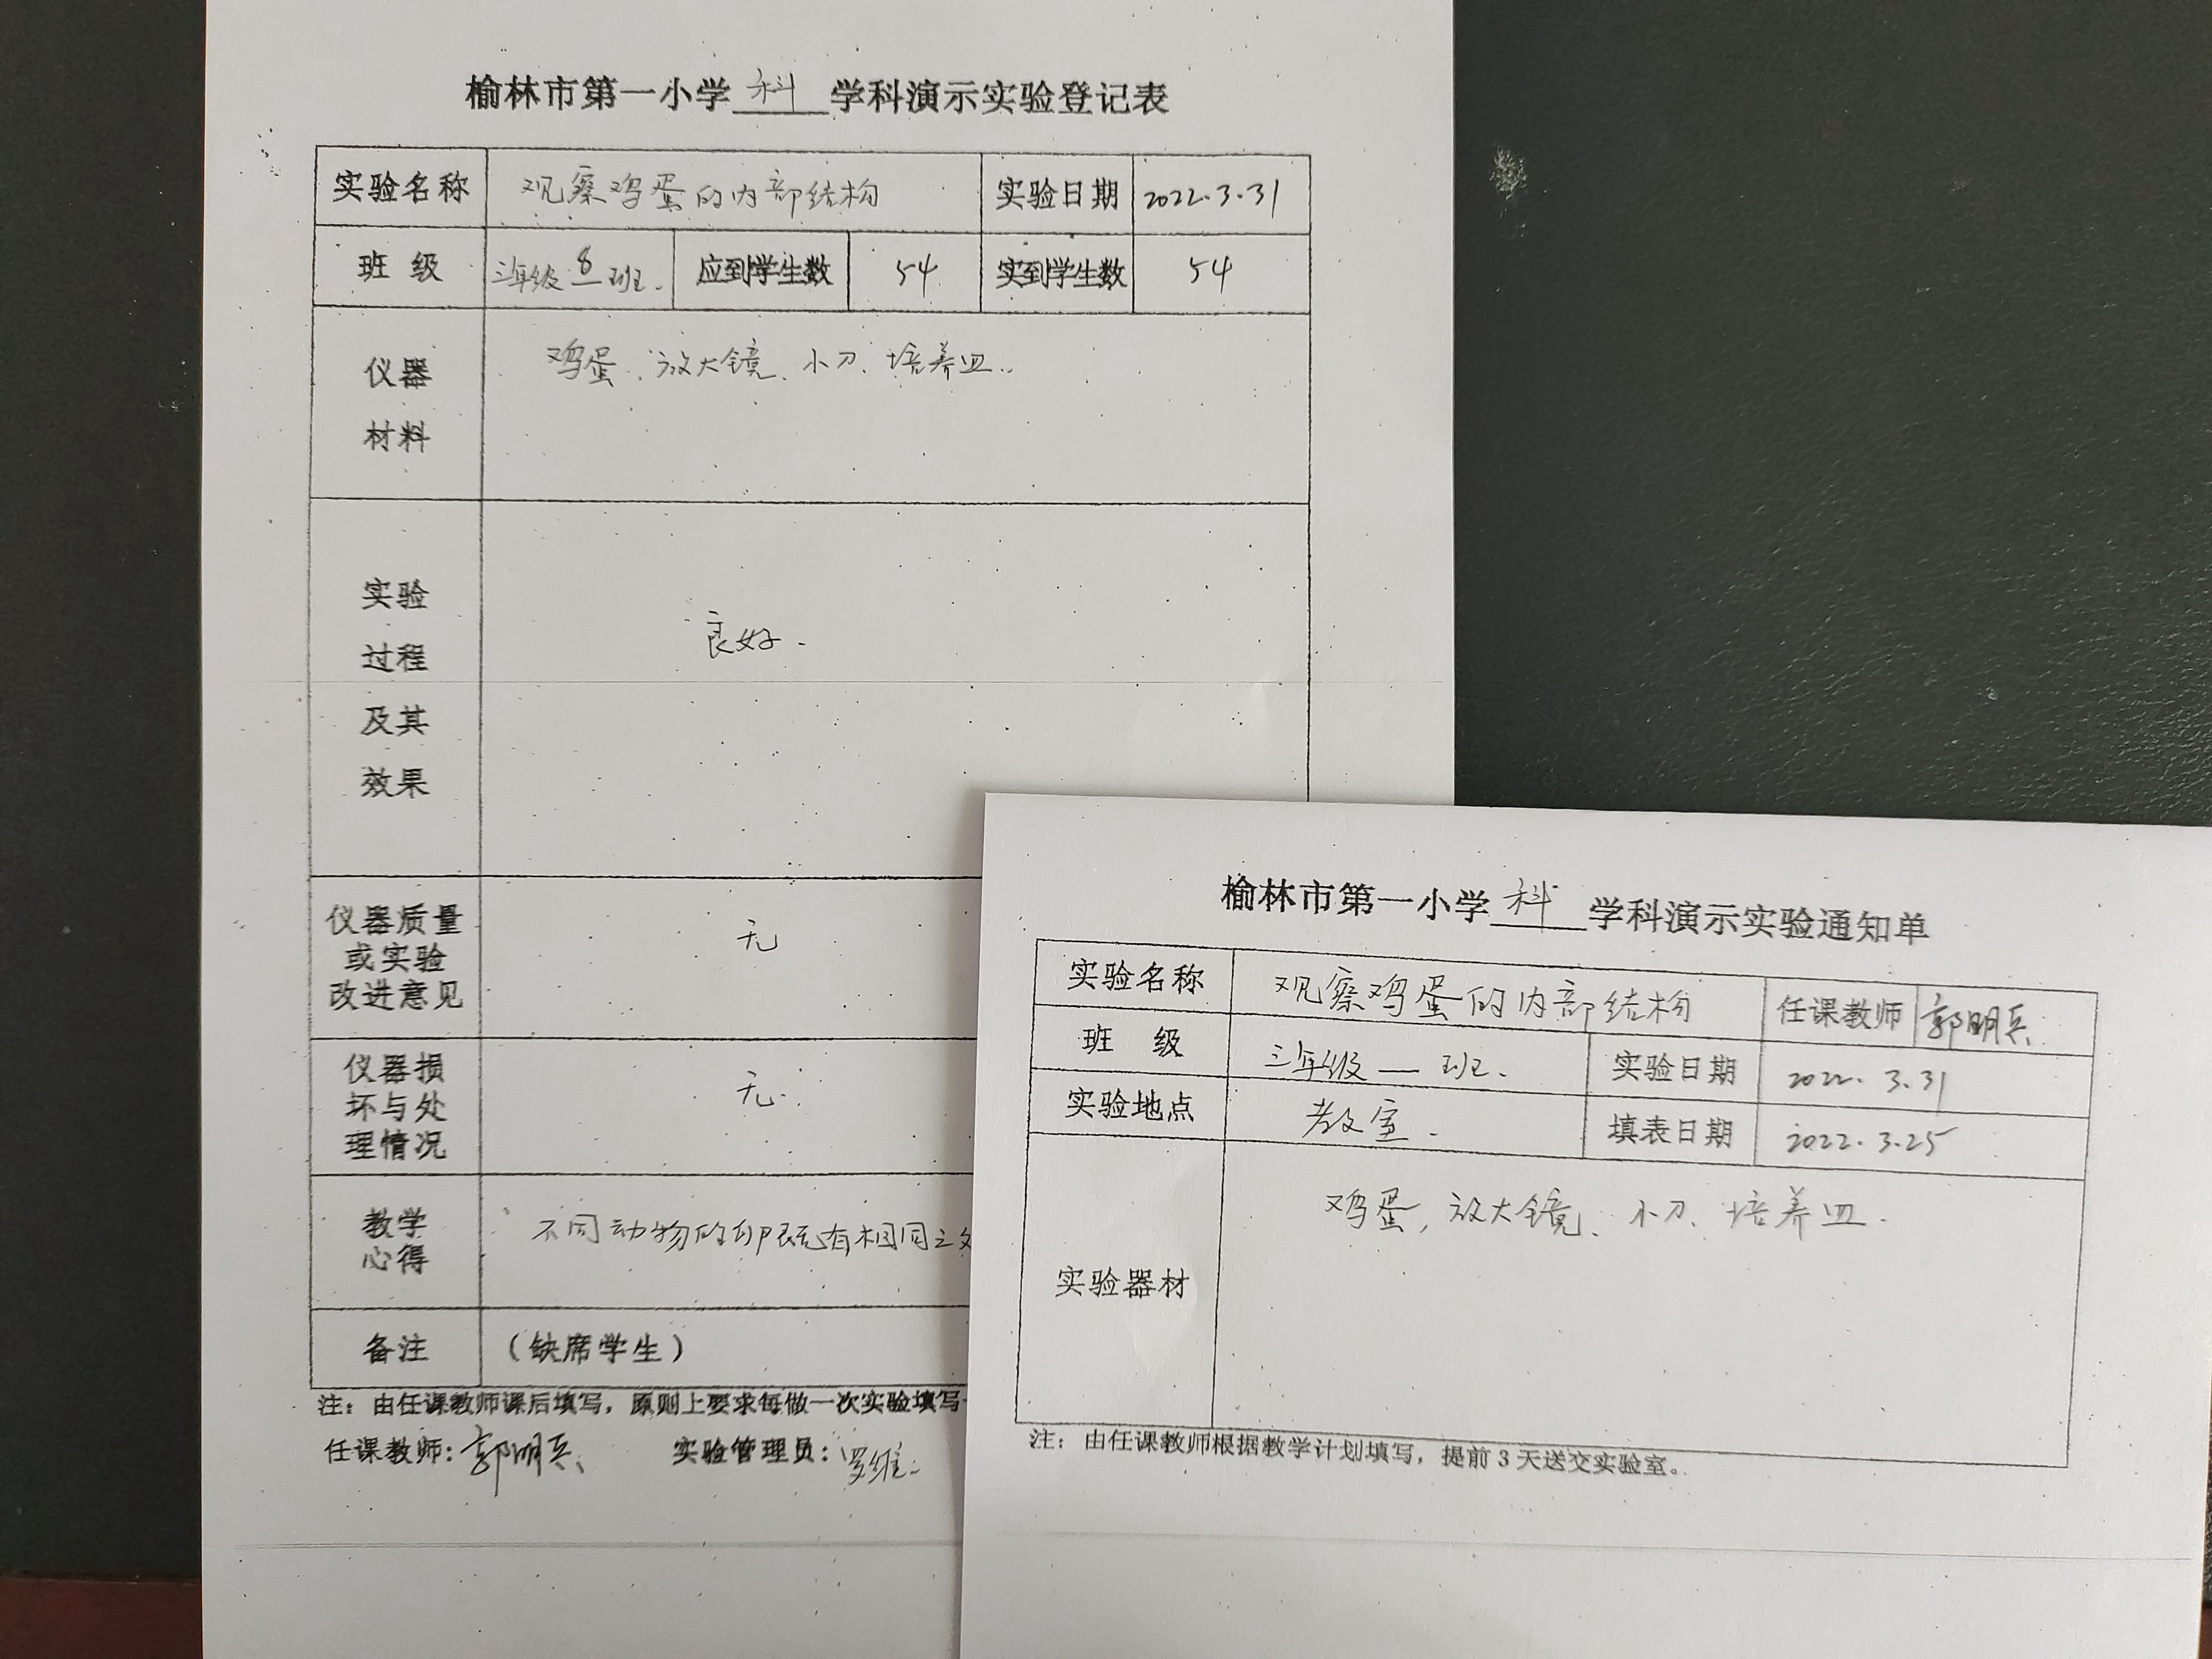 榆林市第一小学 科 学科演示实验登记表
实验名称 观察鸡蛋的内部结构 实验日期 2022.3.31
班 级 三年级 8 班. 应到学生数 54 实到学生数 54
仪器
材料
鸡蛋、放大镜、小刀、培养皿.
实验
过程
及其
效果
良好.
仪器质量
或实验
改进意见
无
仪器损
坏与处
理情况
无.
教学
心得
不同动物的卵既有相同之
备注 (缺席学生)
注：由任课教师课后填写，原则上要求每做一次实验填写
任课教师: 郭明兵 实验管理员: 罗维
榆林市第一小学 科 学科演示实验通知单
实验名称 观察鸡蛋的内部结构 任课教师 郭明兵
班 级 三年级 班. 实验日期 2022.3.31
实验地点 教室. 填表日期 2022.3.25
实验器材
鸡蛋、放大镜、小刀、培养皿.
注：由任课教师根据教学计划填写，提前3天送交实验室。